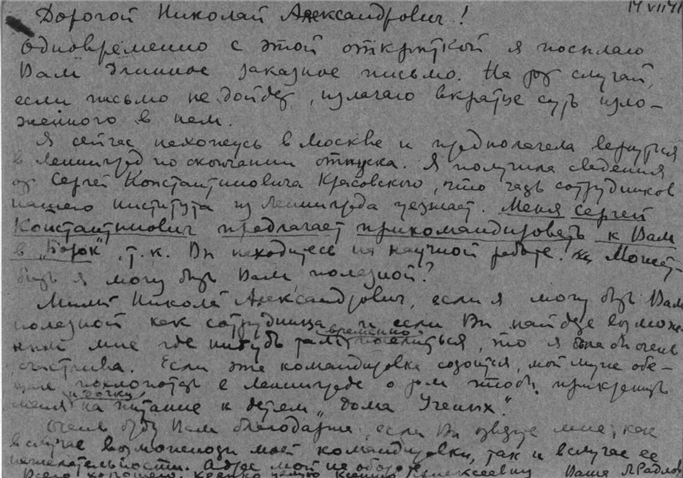 14 VII 41
Дорогой Николай Александрович!
Одновременно с этой открыткой я посылаю
Вам длинное заказное письмо. На тот случай,
если письмо не дойдет, излагаю вкратце суть изло-
женного в нем.
Я сейчас нахожусь в Москве и предполагала вернуться
в Ленинград по окончании отпуска. Я получила сведения
от Сергея Константиновича Красовского, что часть сотрудников
нашего института из Ленинграда уезжает. Меня Сергей
Константинович предлагает прикомандировать к Вам
в „Борок", т.к. Вы находитесь на научной работе. Может
быть я могу быть Вам полезной?
Милый Николай Александрович, если я могу быть Вам
полезной как сотрудница и если Вы найдете возмож-
ным мне где нибудь там временно поселиться, то я была бы очень
счастлива. Если эта командировка состоится, мой муж обе-
щает похлопотать в Ленинграде о том чтобы прикрепить
меня и дочку на питание к детям „Дома Ученых".
Очень буду Вам благодарна, если Вы известите мне, как
в случае возможности моей командировки, так и в случае ее
нежелательности. Адрес мой на обороте.
Всего хорошего. Крепко целую Ксению Алексеевну Ваша Л Радлова